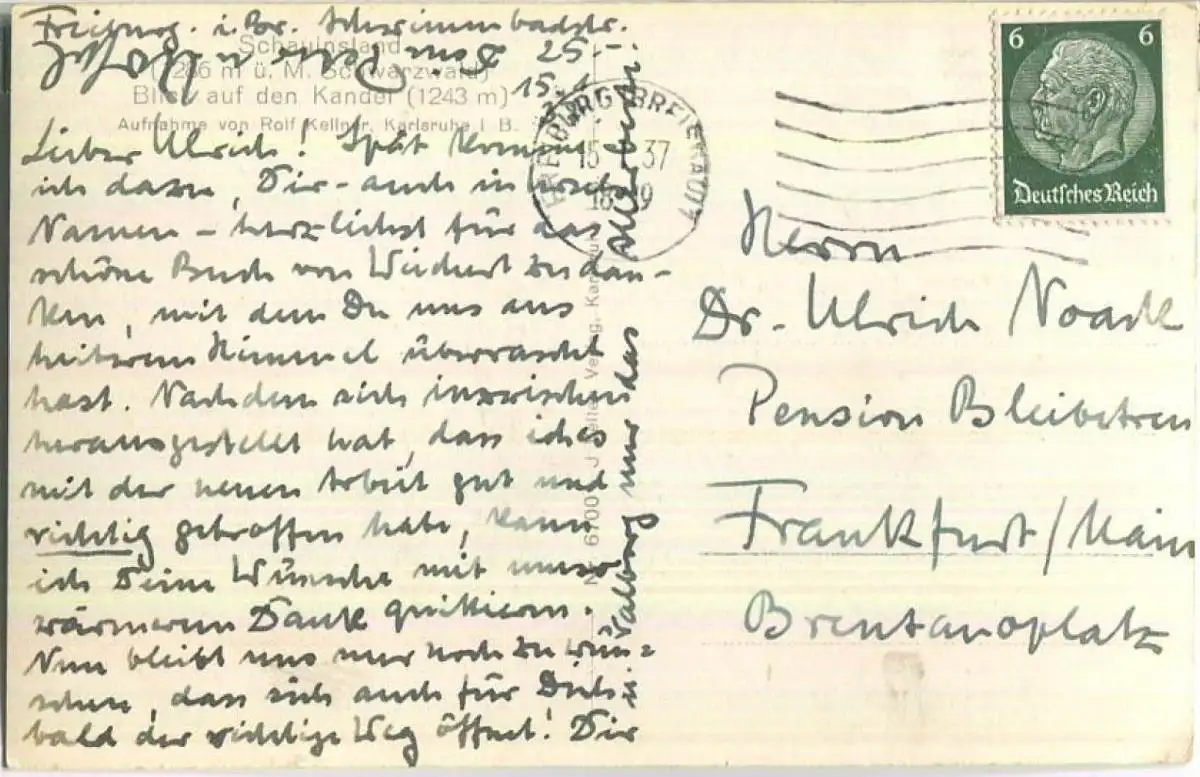 Freiburg. i. Br. Schwimmbadstr.
25 -
15.
Schauinsland
(1286 m ü. M. Schwarzwald)
Blick auf den Kandel (1243 m)
Aufnahme von Rolf Kellner, Karlsruhe i. B.
Lieber Ulrich! Spät komme
ich dazu, Dir - auch in
Namen - herzlichst für das
schöne Buch von Wiechert zu dan-
ken, mit dem Du uns aus
heiterem Himmel überrascht
hast. Nachdem sich inzwischen
herausgestellt hat, dass ich es
mit der neuen Arbeit gut und
richtig getroffen habe, kann
ich Deine Wünsche mit umso
wärmerem Dank quittieren.
Nun bleibt uns nur noch zu wün-
schen, dass sich auch für Dich
bald der richtige Weg öffnet! Dir
nur das
Allerbeste
Dein Peter
FREIBURG BREISGAU
15 37
18-19
6
6
Deutsches Reich
Herrn
Dr. Ulrich Noack
Pension Bleibetreu
Frankfurt/Main
Brentanoplatz
Verlag, Karlsruhe